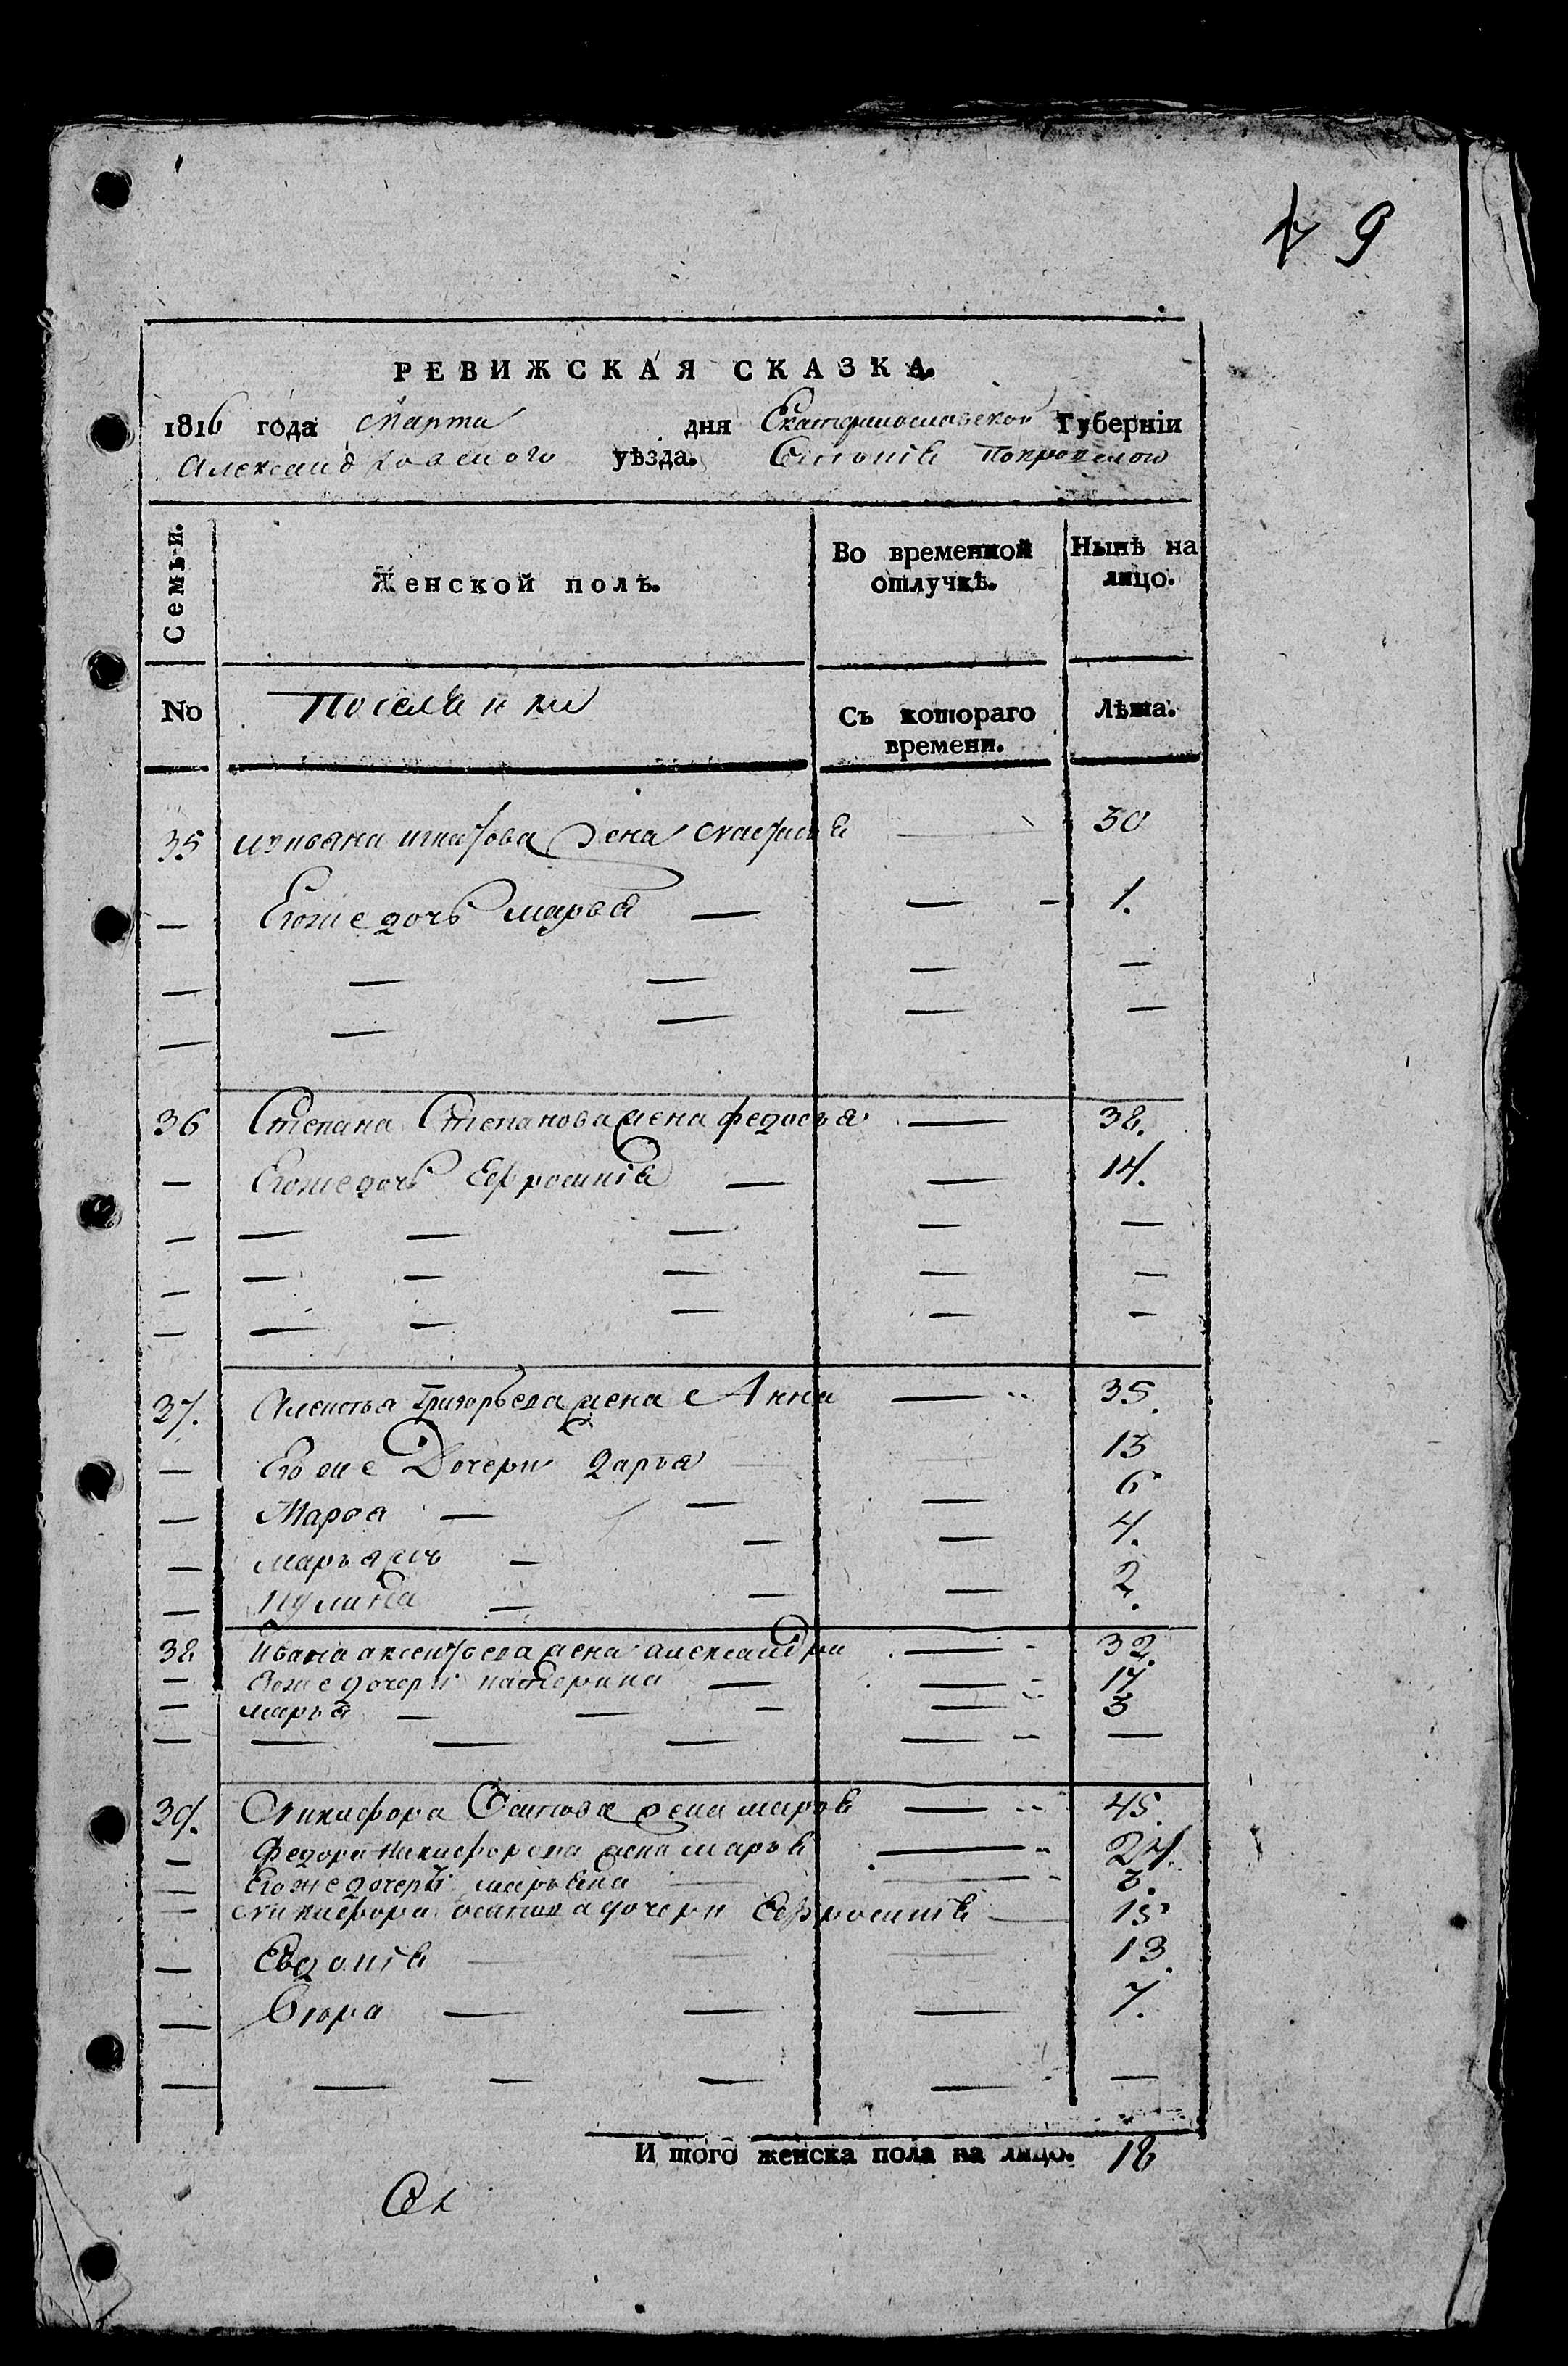 9
РЕВИЖСКАЯ СКАЗКА.
1816 года Марта дня Екатеринославской Губерніи
Александровского уѣзда. Селенія Покровского
Семьи.
Женской полъ.
Во временной отлучкѣ.
Нынѣ на лицо.
No
Поселянки
Съ котораго времени.
Лѣта.
35 жена 30
— Егоже дочь марья — — — 1.
— — — — —
— — — — —
36 Степана Степанова жена федосья — 38.
— Егоже дочь Ефросинія — — 14.
— — — — — —
— — — — — —
— — — — — —
37. Алексея Григорьева жена Анна — 35.
— Егоже Дочери дарья — 13
— Марфа — — — 6
— марья — — — 4.
— — — — 2.
38 Ивана жена александра — 32.
— Егоже дочери катерина — — 17
— марья — — — — 3
— — — — — —
39. Никифора Осипова жена марфа — 45.
— Федора Никифорова жена марья — 24.
— Егоже дочери марьяна — — 3.
— Никифора осипова дочери Ефросинія — 15
— Евдокія — — — 13.
— — — — 7.
— — — — — —
И того женска пола на лицо. 18